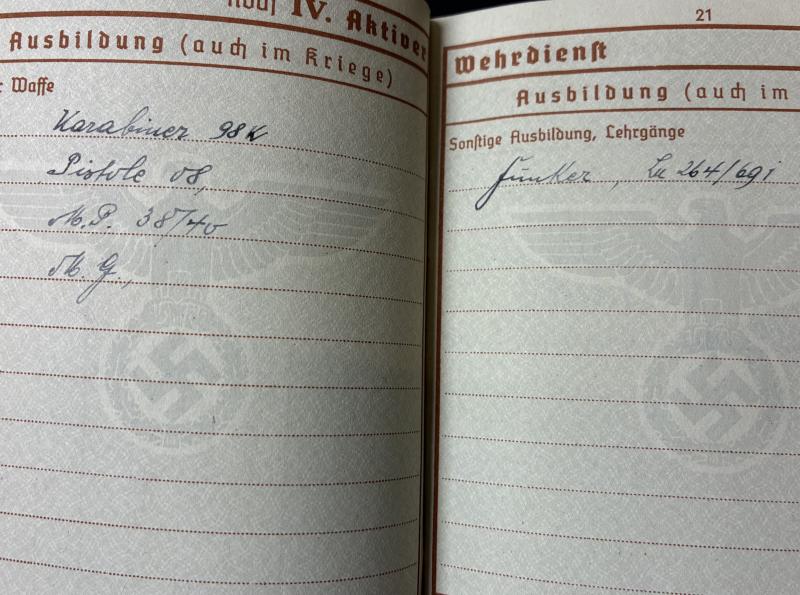 Noch IV. Aktiver
Ausbildung (auch im Kriege)
Waffe
Karabiner 98k
Pistole 08,
M.P. 38/40
M.G,
21
Wehrdienst
Ausbildung (auch im
Sonstige Ausbildung, Lehrgänge
Funker, 264/69